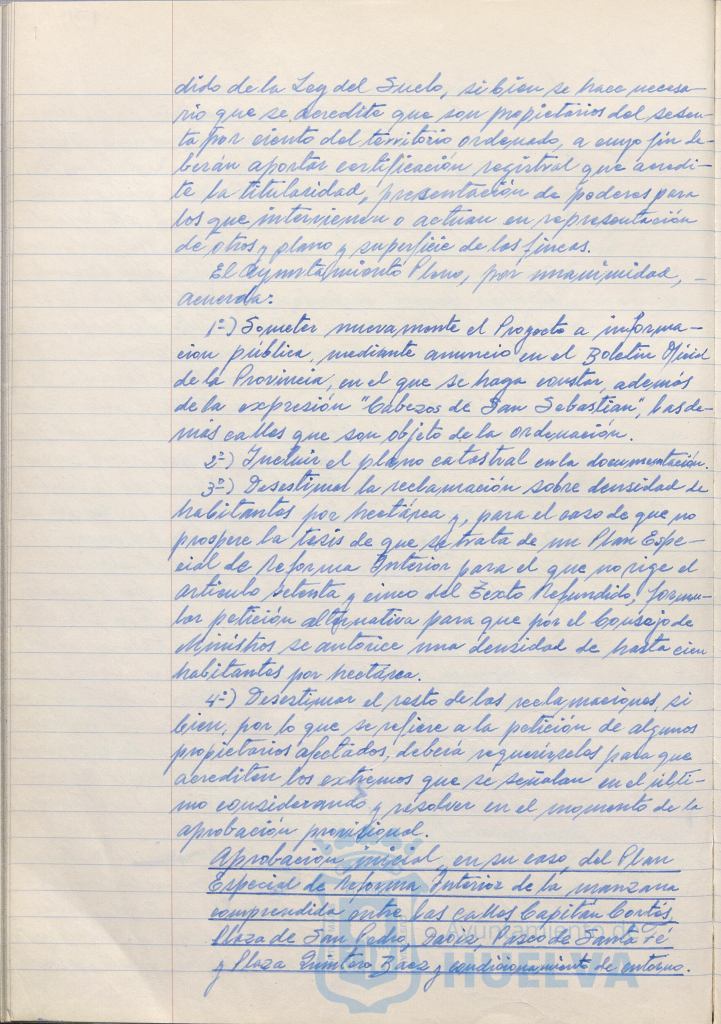 dido de la Ley del Suelo, si bien se hace necesa-
rio que se acredite que son propietarios del sesen-
ta por ciento del territorio ordenado, a cuyo fin de-
berán aportar certificación registral que acredi-
te la titularidad, presentación de poderes para
los que intervienen o actuan en representación
de otros y plano y superficie de las fincas.
El Ayuntamiento Pleno, por unanimidad, -
acuerda:
1º) Someter nuevamente el Proyecto a informa-
cion pública, mediante anuncio en el Boletín Oficial
de la Provincia, en el que se haga constar, además
de la expresión "Cabezos de San Sebastian", las de-
más calles que son objeto de la ordenación.
2º) Incluir el plano catastral en la documentación.
3º) Desestimar la reclamación sobre densidad de
habitantes por hectárea y, para el caso de que no
prospere la tesis de que se trata de un Plan Espe-
cial de Reforma Interior para el que no rige el
artículo setenta y cinco del Texto Refundido, formu-
lar petición alternativa para que por el Consejo de
Ministros se autorice una densidad de hasta cien
habitantes por hectárea.
4º) Desestimar el resto de las reclamaciones, si
bien, por lo que se refiere a la petición de algunos
propietarios afectados, deberá requerírseles para que
acrediten los extremos que se señalan en el últi-
mo considerando y resolver en el momento de la
aprobación provisional.
Aprobación inicial, en su caso, del Plan
Especial de Reforma Interior de la manzana
comprendida entre las calles Capitán Cortés,
Plaza de San Pedro, Daoiz, Paseo de Santa Fé
y Plaza Quintero Báez y condicionamiento de entorno.
Ayuntamiento de
HUELVA